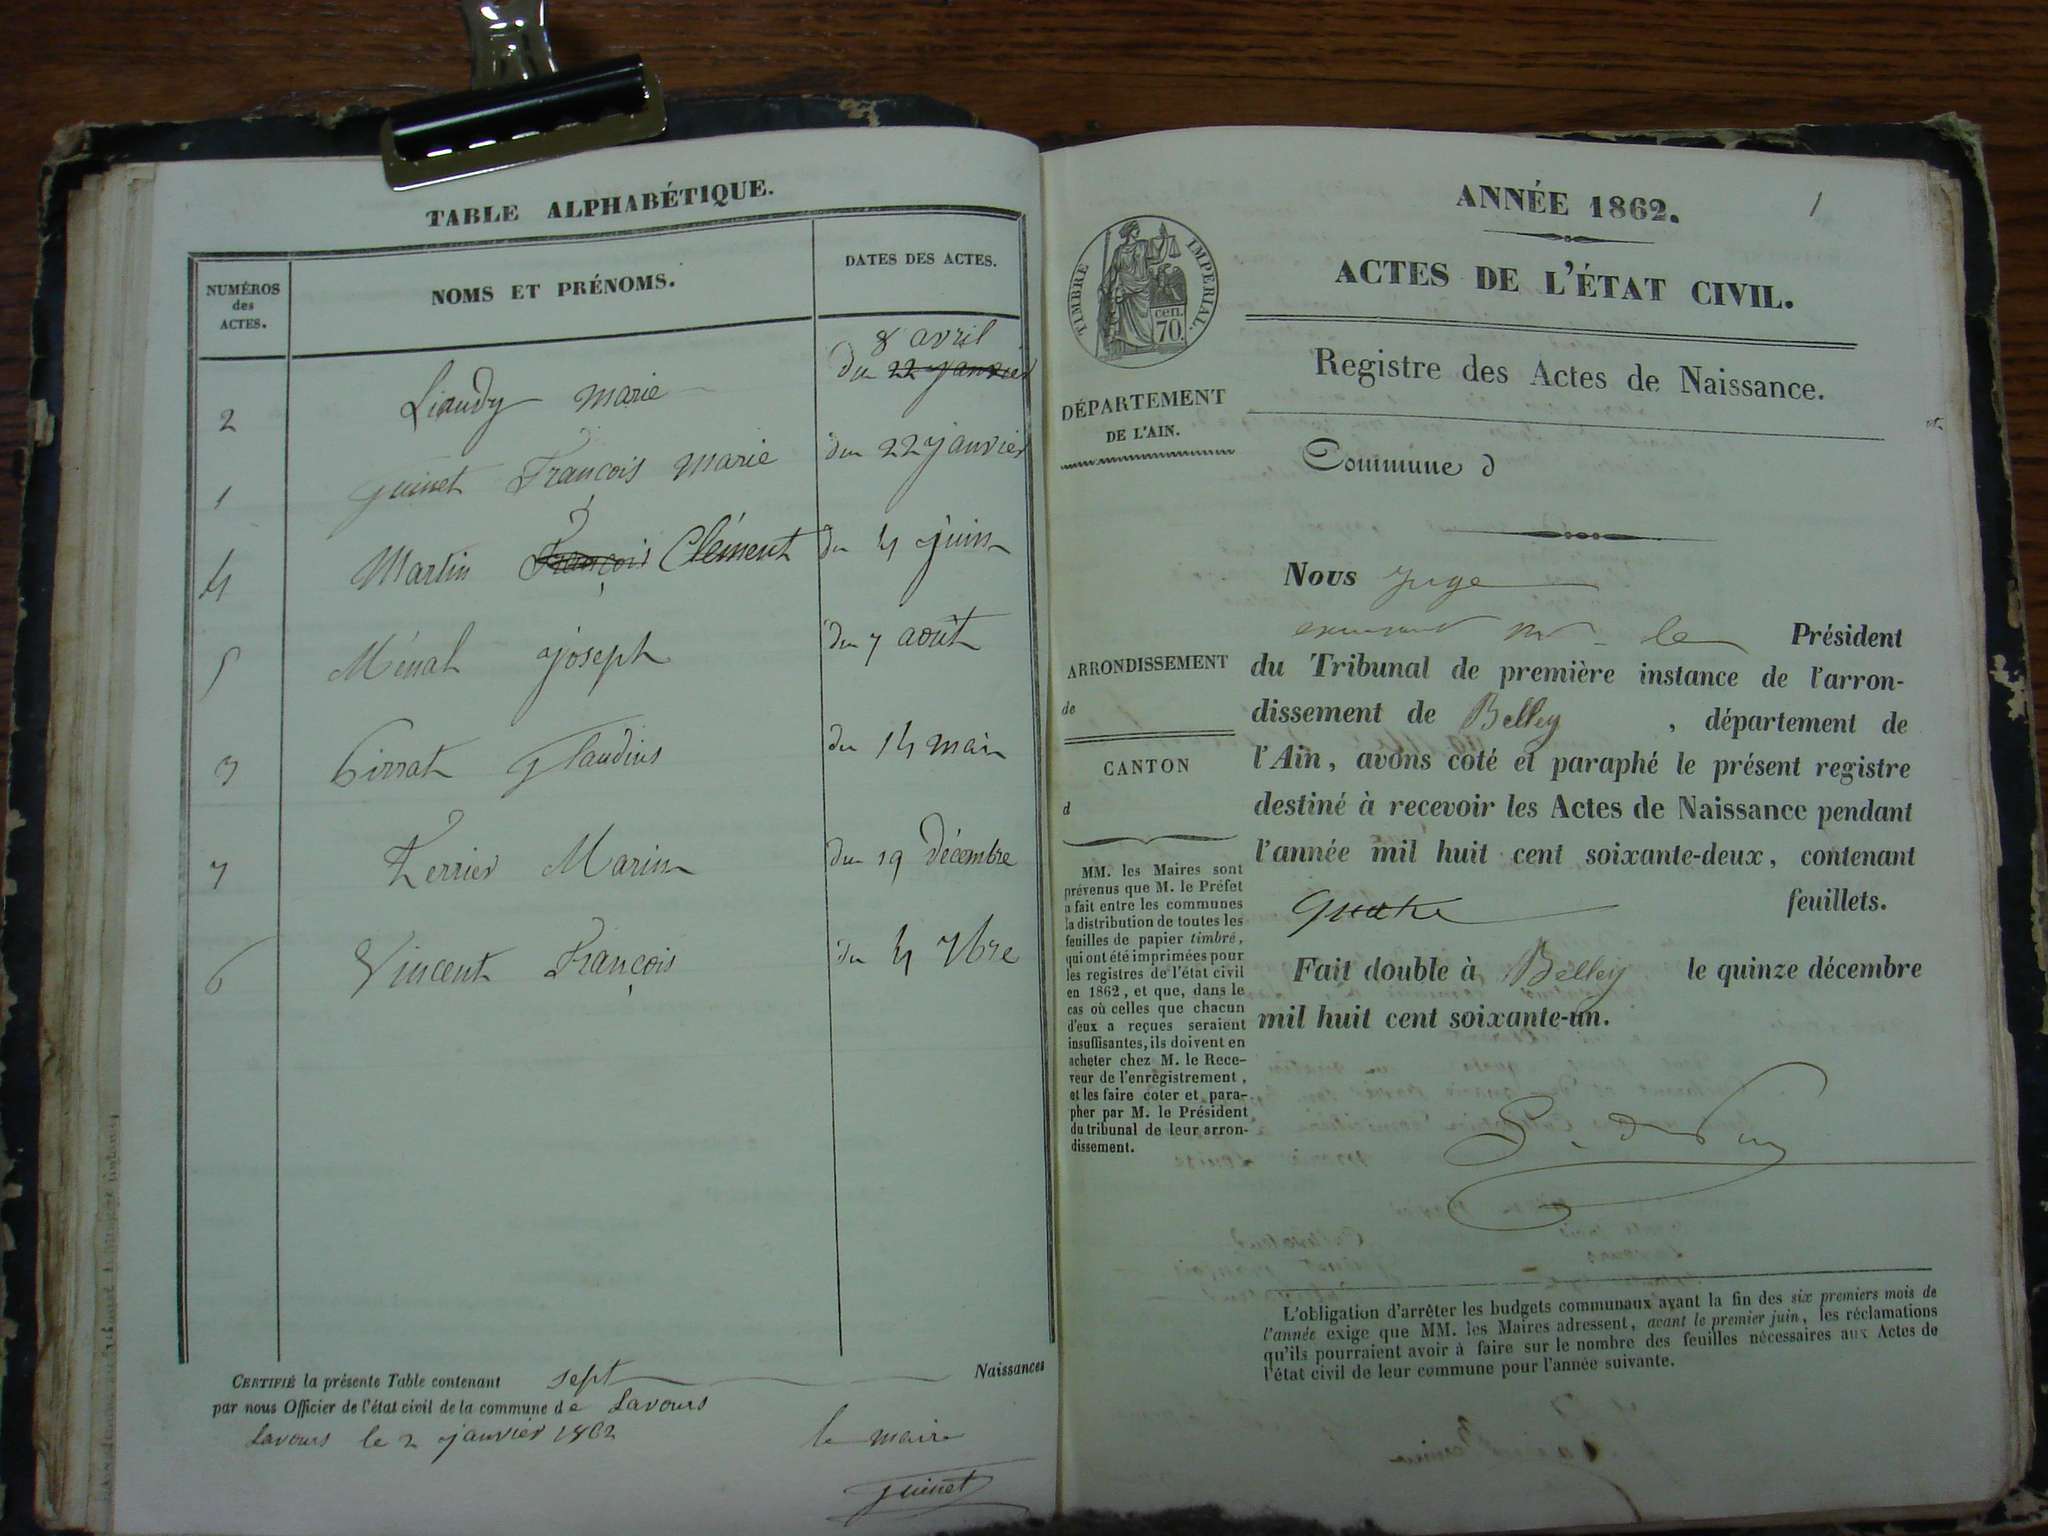 TABLE ALPHABÉTIQUE.
NUMÉROS
des
ACTES.
NOMS ET PRÉNOMS.
DATES DES ACTES.
8 avril
2 Liaudy Marie du 22 janvier
1 Guinet François Marie du 22 janvier
4 Martin François Clément du 4 juin
5 Ménal joseph du 7 août
3 Pirrat Claudius du 14 mai
7 Terrier Marin du 19 décembre
6 Vincent François du 4 7bre
CERTIFIÉ la présente Table contenant sept Naissances
par nous Officier de l'état civil de la commune de Lavours
Lavours le 2 janvier 1862
le maire
Guinet
1
ANNÉE 1862.
ACTES DE L'ÉTAT CIVIL.
Registre des Actes de Naissance.
TIMBRE IMPÉRIAL.
cen.
70.
DÉPARTEMENT
DE L'AIN.
Commune d
ARRONDISSEMENT
de
CANTON
d
MM. les Maires sont
prévenus que M. le Préfet
a fait entre les communes
la distribution de toutes les
feuilles de papier timbré,
qui ont été imprimées pour
les registres de l'état civil
en 1862, et que, dans le
cas où celles que chacun
d'eux a reçues seraient
insuffisantes, ils doivent en
acheter chez M. le Rece-
veur de l'enregistrement,
et les faire coter et para-
pher par M. le Président
du tribunal de leur arron-
dissement.
Nous juge
le Président
du Tribunal de première instance de l'arron-
dissement de Belley, département de
l'Ain, avons coté et paraphé le présent registre
destiné à recevoir les Actes de Naissance pendant
l'année mil huit cent soixante-deux, contenant
quatre feuillets.
Fait double à Belley le quinze décembre
mil huit cent soixante-un.
L'obligation d'arrêter les budgets communaux avant la fin des six premiers mois de
l'année exige que MM. les Maires adressent, avant le premier juin, les réclamations
qu'ils pourraient avoir à faire sur le nombre des feuilles nécessaires aux Actes de
l'état civil de leur commune pour l'année suivante.